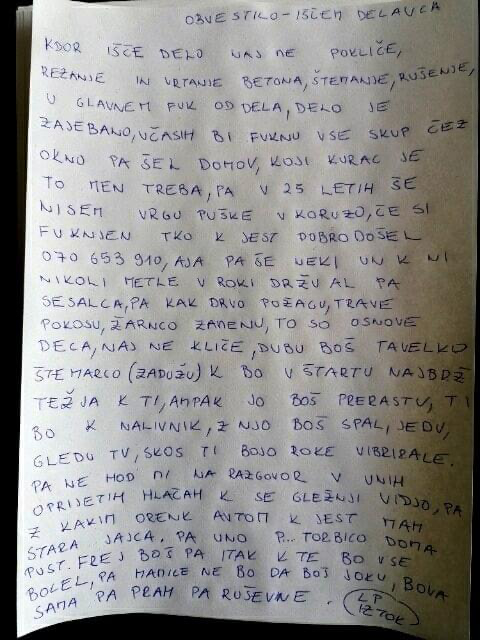 OBVESTILO - IŠČEM DELAVCA
KDOR IŠČE DELO NAJ ME POKLIČE,
REZANJE IN VRTANJE BETONA, ŠTEMANJE, RUŠENJE,
U GLAVNEM FUK OD DELA, DELO JE
ZAJEBANO, UČASIH BI FUKNU VSE SKUP ČEZ
OKNO PA ŠEL DOMOV, KOJI KURAC JE
TO MEN TREBA, PA V 25 LETIH ŠE
NISEM VRGU PUŠKE V KORUZO, ČE SI
FUKNJEN TKO K JEST DOBRODOŠEL
070 653 910, AJA PA ŠE NEKI UN K NI
NIKOLI METLE V ROKI DRŽU AL PA
SESALCA, PA KAK DRVO POŽAGU, TRAVE
POKOSU, ŽARNCO ZAMENU, TO SO OSNOVE
DECA, NAJ NE KLIČE, DUBU BOŠ TAVELKO
ŠTEMARCO (ZADUŽU) K BO V ŠTARTU NAJBRŽ
TEŽJA K TI, AMPAK JO BOŠ PRERASTU, TI
BO K NALIVNIK, Z NJO BOŠ SPAL, JEDU,
GLEDU TV, SKOS TI BOJO ROKE VIBRIRALE.
PA NE HOD MI NA RAZGOVOR V UNIH
OPRIJETIH HLAČAH K SE GLEŽNJI VIDJO, PA
Z KAKIM ORENK AVTOM K JEST MAM
STARA JAJCA. PA UNO P... TORBICO DOMA
PUST. FREJ BOŠ PA ITAK K TE BO VSE
BOLEL, PA MAMICE NE BO DA BOŠ JOKU, BOVA
SAMA PA PRAH PA RUŠEVNE.
LP
IZTOK